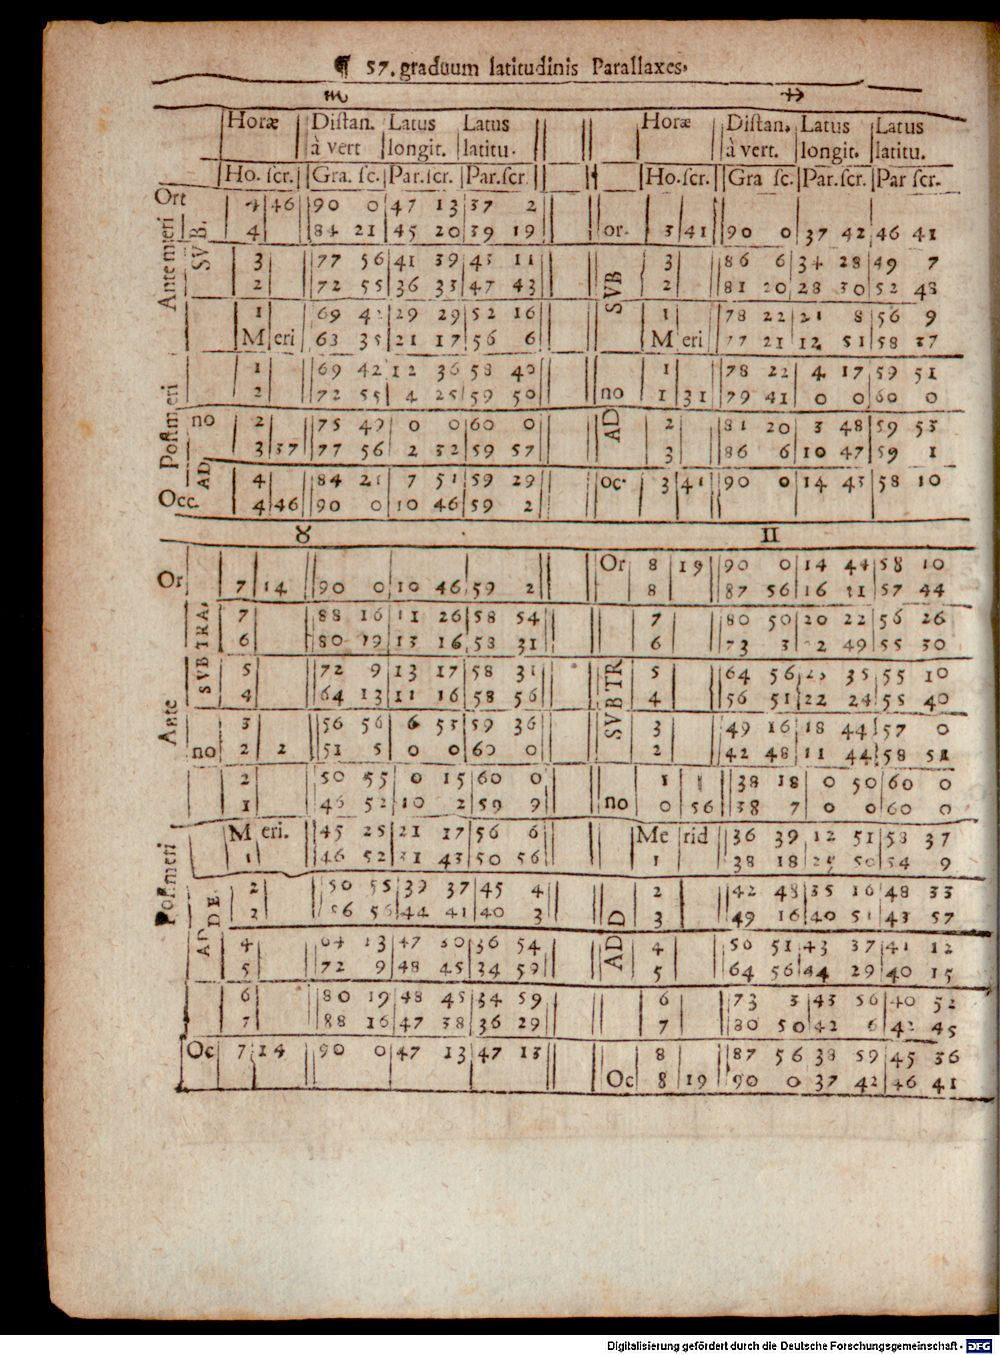 ¶ 57. graduum latitudinis Parallaxes,
♏ ♐
Horæ Distan. Latus Latus Horæ Distan, Latus Latus
à vert longit. latitu. à vert. longit. latitu.
Ho. scr. Gra. sc. Par. scr. Par. scr Ho. scr. Gra sc. Par. scr. Par scr.
Ort 4 46 90 0 47 13 37 2
4 84 21 45 20 39 19 or. 3 41 90 0 37 42 46 41
Ante meri SVB.
3 77 56 41 39 43 11 SVB 3 86 6 34 28 49 7
2 72 55 36 33 47 43 2 81 20 28 30 52 48
1 69 42 29 29 52 16 1 78 22 21 8 56 9
Meri 63 35 21 17 56 6 Meri 77 21 12 51 58 37
Postmeri
1 69 42 12 36 58 40 1 78 22 4 17 59 51
2 72 55 4 25 59 50 no 1 31 79 41 0 0 60 0
no 2 75 49 0 0 60 0 AD 2 81 20 3 48 59 53
3 37 77 56 2 32 59 57 3 86 6 10 47 59 1
AD 4 84 21 7 51 59 29 oc. 3 41 90 0 14 43 58 10
Occ. 4 46 90 0 10 46 59 2
♉ ♊
Or 8 19 90 0 14 44 58 10
Or 7 14 90 0 10 46 59 2 8 87 56 16 31 57 44
Ante SVBTRA.
7 88 16 11 26 58 54 7 80 50 20 22 56 26
6 80 19 13 16 58 31 6 73 3 2 49 55 30
5 72 9 13 17 58 31 SVBTR 5 64 56 35 55 10
4 64 13 11 16 58 56 4 56 51 22 24 55 40
3 56 56 6 53 59 36 3 49 16 18 44 57 0
no 2 2 51 5 0 0 60 0 2 42 48 11 44 58 51
2 50 55 0 15 60 0 1 38 18 0 50 60 0
1 46 52 10 2 59 9 no 0 56 38 7 0 0 60 0
Postmeri
Meri. 45 25 21 17 56 6 Merid 36 39 12 51 58 37
1 46 52 31 43 50 56 1 38 18 25 50 54 9
ADDE.
2 50 55 39 37 45 4 ADD 2 42 48 35 16 48 33
2 56 56 44 41 40 3 3 49 16 40 51 43 57
4 64 13 47 30 36 54 4 50 51 43 37 41 12
5 72 9 48 45 34 59 5 64 56 44 29 40 15
6 80 19 48 45 34 59 6 73 3 43 56 40 52
7 88 16 47 38 36 29 7 80 50 42 6 42 45
Oc 7 14 90 0 47 13 47 13 8 87 56 38 59 45 36
Oc 8 19 90 0 37 42 46 41
Digitalisierung gefördert durch die Deutsche Forschungsgemeinschaft - DFG